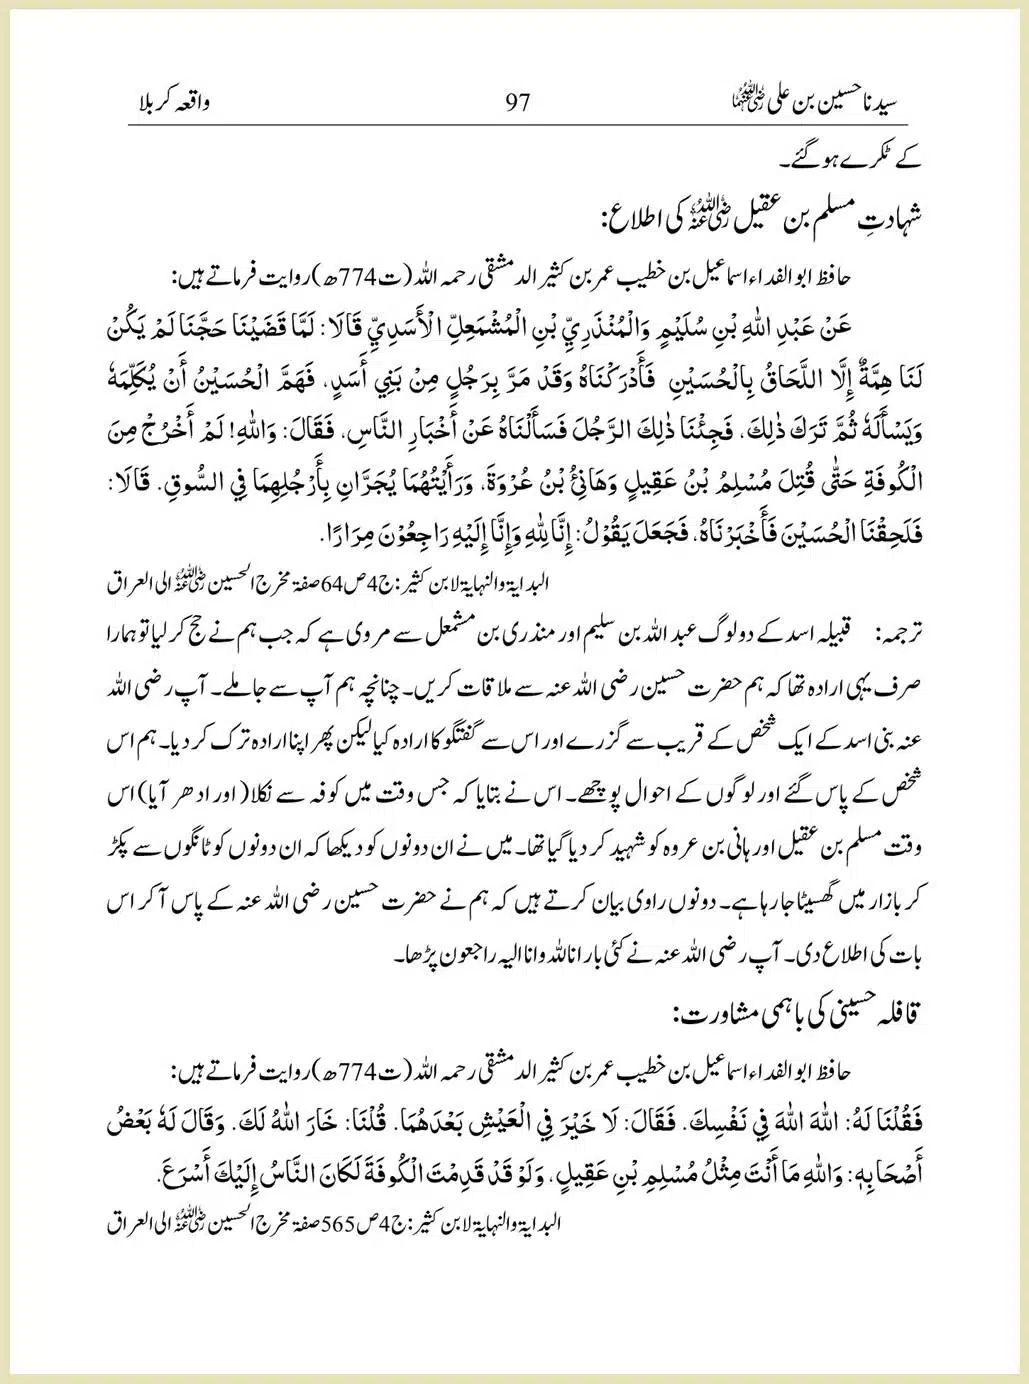 سیدنا حسین بن علی رضی اللہ عنہما 97 واقعہ کربلا
کے ٹکرے ہو گئے۔
شہادتِ مسلم بن عقیل رضی اللہ عنہ کی اطلاع:
حافظ ابو الفداء اسماعیل بن خطیب عمر بن کثیر الدمشقی رحمہ اللہ (ت774ھ) روایت فرماتے ہیں:
عَنْ عَبْدِ اللّٰهِ بْنِ سُلَيْمٍ وَالْمُنْذَرِيِّ بْنِ الْمُشْمَعِلِّ الْأَسَدِيِّ قَالَا: لَمَّا قَضَيْنَا حَجَّنَا لَمْ يَكُنْ
لَنَا هِمَّةٌ إِلَّا اللَّحَاقُ بِالْحُسَيْنِ فَأَدْرَكْنَاهُ وَقَدْ مَرَّ بِرَجُلٍ مِنْ بَنِي أَسَدٍ، فَهَمَّ الْحُسَيْنُ أَنْ يُكَلِّمَهٗ
وَيَسْأَلَهٗ ثُمَّ تَرَكَ ذٰلِكَ، فَجِئْنَا ذٰلِكَ الرَّجُلَ فَسَأَلْنَاهُ عَنْ أَخْبَارِ النَّاسِ، فَقَالَ: وَاللّٰهِ! لَمْ أَخْرُجْ مِنَ
الْكُوفَةِ حَتّٰى قُتِلَ مُسْلِمُ بْنُ عَقِيلٍ وَهَانِئُ بْنُ عُرْوَةَ، وَرَأَيْتُهُمَا يُجَرَّانِ بِأَرْجُلِهِمَا فِي السُّوقِ. قَالَا:
فَلَحِقْنَا الْحُسَيْنَ فَأَخْبَرْنَاهُ، فَجَعَلَ يَقُوْلُ: إِنَّا لِلّٰهِ وَإِنَّا إِلَيْهِ رَاجِعُوْنَ مِرَارًا.
البدایۃ والنہایۃ لابن کثیر: ج4ص64صفۃ مخرج الحسین رضی اللہ عنہ الی العراق
ترجمہ: قبیلہ اسد کے دو لوگ عبد اللہ بن سلیم اور منذری بن مشمعل سے مروی ہے کہ جب ہم نے حج کر لیا تو ہمارا
صرف یہی ارادہ تھا کہ ہم حضرت حسین رضی اللہ عنہ سے ملاقات کریں۔ چنانچہ ہم آپ سے جا ملے۔ آپ رضی اللہ
عنہ بنی اسد کے ایک شخص کے قریب سے گزرے اور اس سے گفتگو کا ارادہ کیا لیکن پھر اپنا ارادہ ترک کر دیا۔ ہم اس
شخص کے پاس گئے اور لوگوں کے احوال پوچھے۔ اس نے بتایا کہ جس وقت میں کوفہ سے نکلا (اور ادھر آیا) اس
وقت مسلم بن عقیل اور ہانی بن عروہ کو شہید کر دیا گیا تھا۔ میں نے ان دونوں کو دیکھا کہ ان دونوں کو ٹانگوں سے پکڑ
کر بازار میں گھسیٹا جا رہا ہے۔ دونوں راوی بیان کرتے ہیں کہ ہم نے حضرت حسین رضی اللہ عنہ کے پاس آ کر اس
بات کی اطلاع دی۔ آپ رضی اللہ عنہ نے کئی بار اناللہ وانا الیہ راجعون پڑھا۔
قافلہ حسینی کی باہمی مشاورت:
حافظ ابو الفداء اسماعیل بن خطیب عمر بن کثیر الدمشقی رحمہ اللہ (ت774ھ) روایت فرماتے ہیں:
فَقُلْنَا لَهُ: اللّٰهَ اللّٰهَ فِي نَفْسِكَ. فَقَالَ: لَا خَيْرَ فِي الْعَيْشِ بَعْدَهُمَا. قُلْنَا: خَارَ اللّٰهُ لَكَ. وَقَالَ لَهٗ بَعْضُ
أَصْحَابِهٖ: وَاللّٰهِ مَا أَنْتَ مِثْلُ مُسْلِمِ بْنِ عَقِيلٍ، وَلَوْ قَدْ قَدِمْتَ الْكُوفَةَ لَكَانَ النَّاسُ إِلَيْكَ أَسْرَعَ.
البدایۃ والنہایۃ لابن کثیر: ج4ص565صفۃ مخرج الحسین رضی اللہ عنہ الی العراق